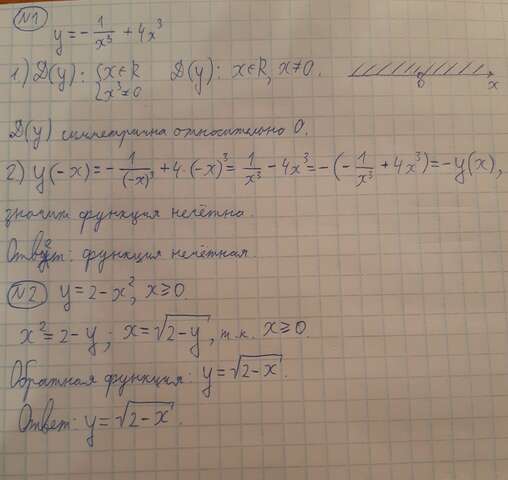 №1
y = -1/x³ + 4x³
1) D(y): {x∈R {x³≠0 D(y): x∈R, x≠0. 0 x
D(y) симметрична относительно 0.
2) y(-x) = -1/(-x)³ + 4·(-x)³ = 1/x³ - 4x³ = -(-1/x³ + 4x³) = -y(x),
значит функция нечётна.
Ответ: функция нечётная.
№2 y = 2-x², x≥0.
x² = 2-y; x = √(2-y), т.к. x≥0.
Обратная функция: y = √(2-x).
Ответ: y = √(2-x).